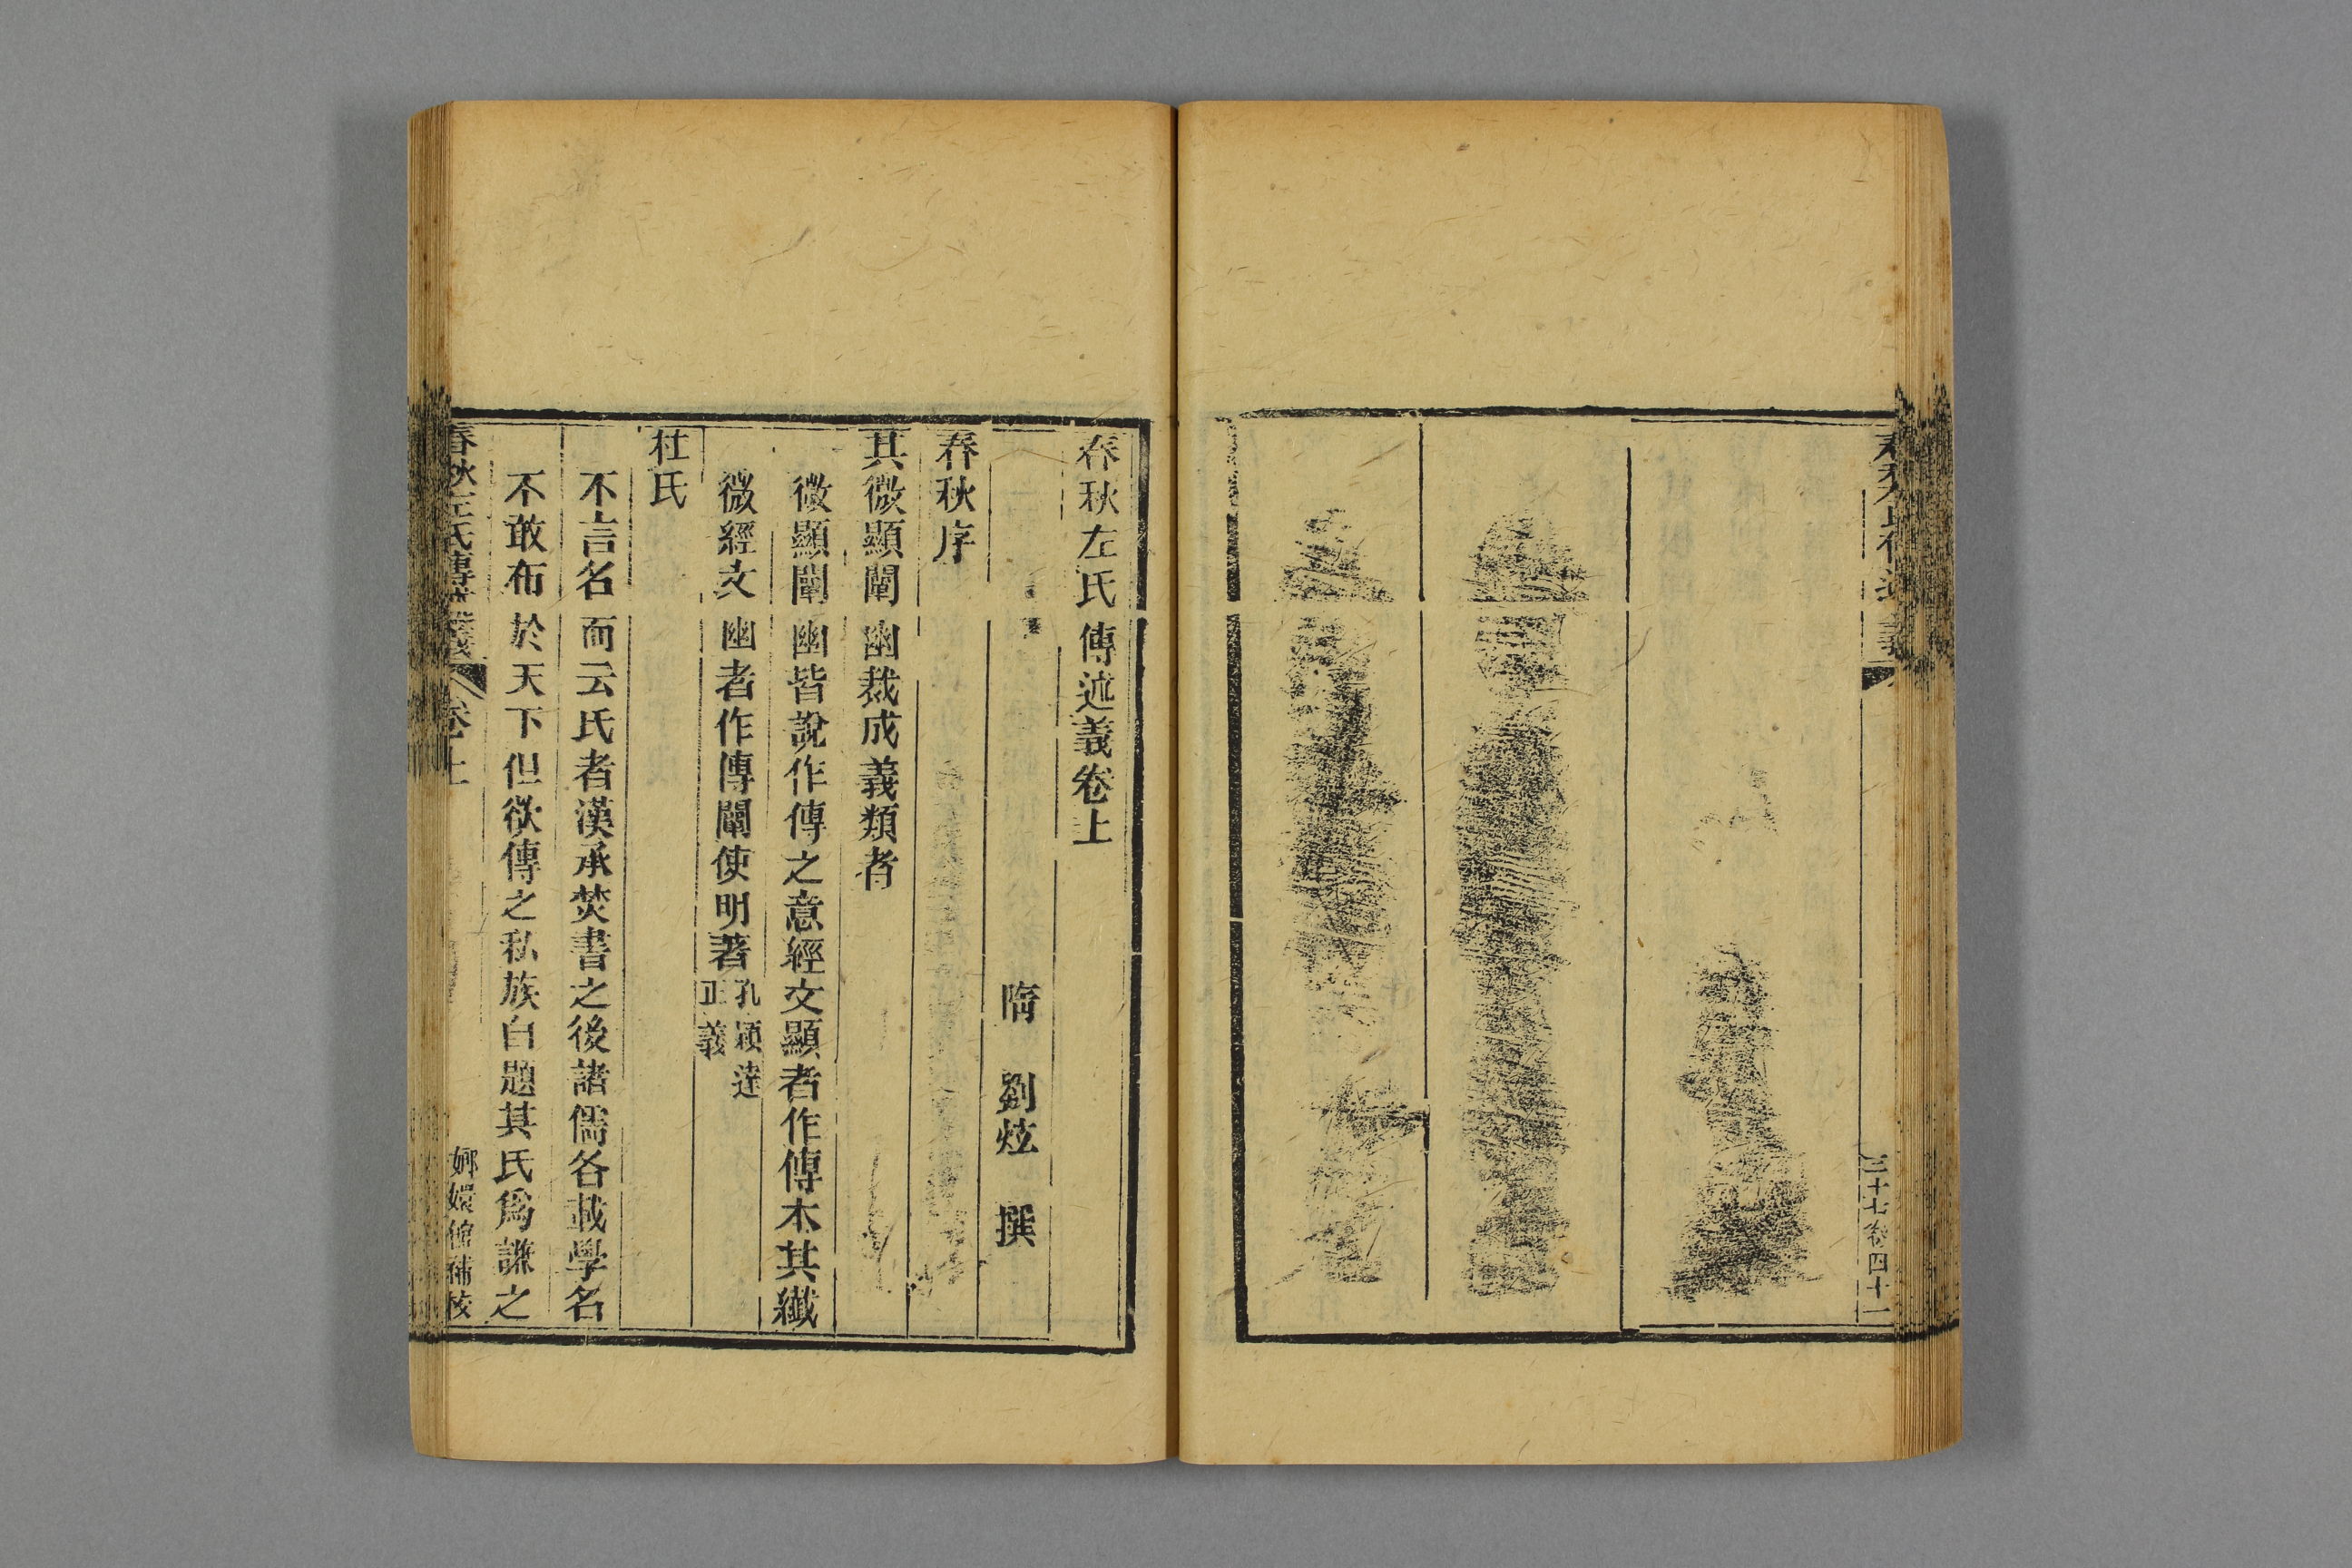 三十七卷四十一
春秋左氏傳述義卷上
隋 劉炫 撰
春秋序
其微顯闡幽裁成義類者
微顯闡幽皆說作傳之意經文顯者作傳本其纎
微經文幽者作傳闡使明著孔穎達
正義
杜氏
不言名而云氏者漢承焚書之後諸儒各載學名
不敢布於天下但欲傳之私族自題其氏爲謙之
春秋左氏傳述義 卷上 嫏嬛館補校